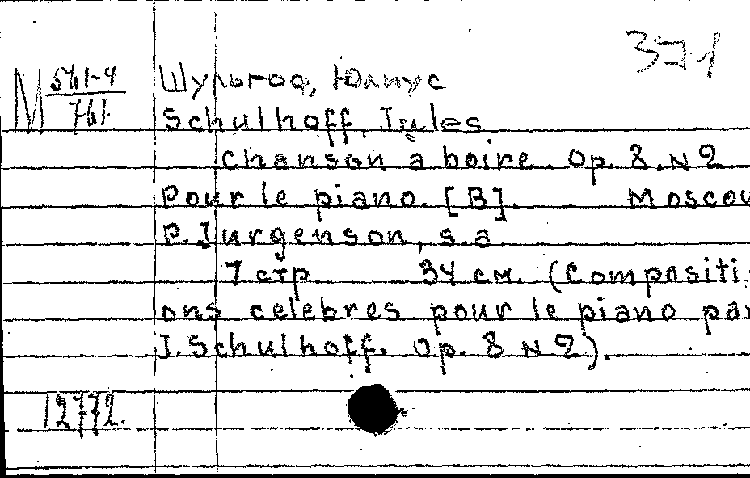 371
М 561-4/761
Шульгоф, Юлиус
Schulhoff, Jules
Chanson a boire. Op. 8. N 2
Pour le piano. [B]. Moscou
P. Jurgenson, s.a
7 стр. 34 см. (Compositi-
ons celebres pour le piano par
J. Schulhoff. Op. 8 N 2).
12772.